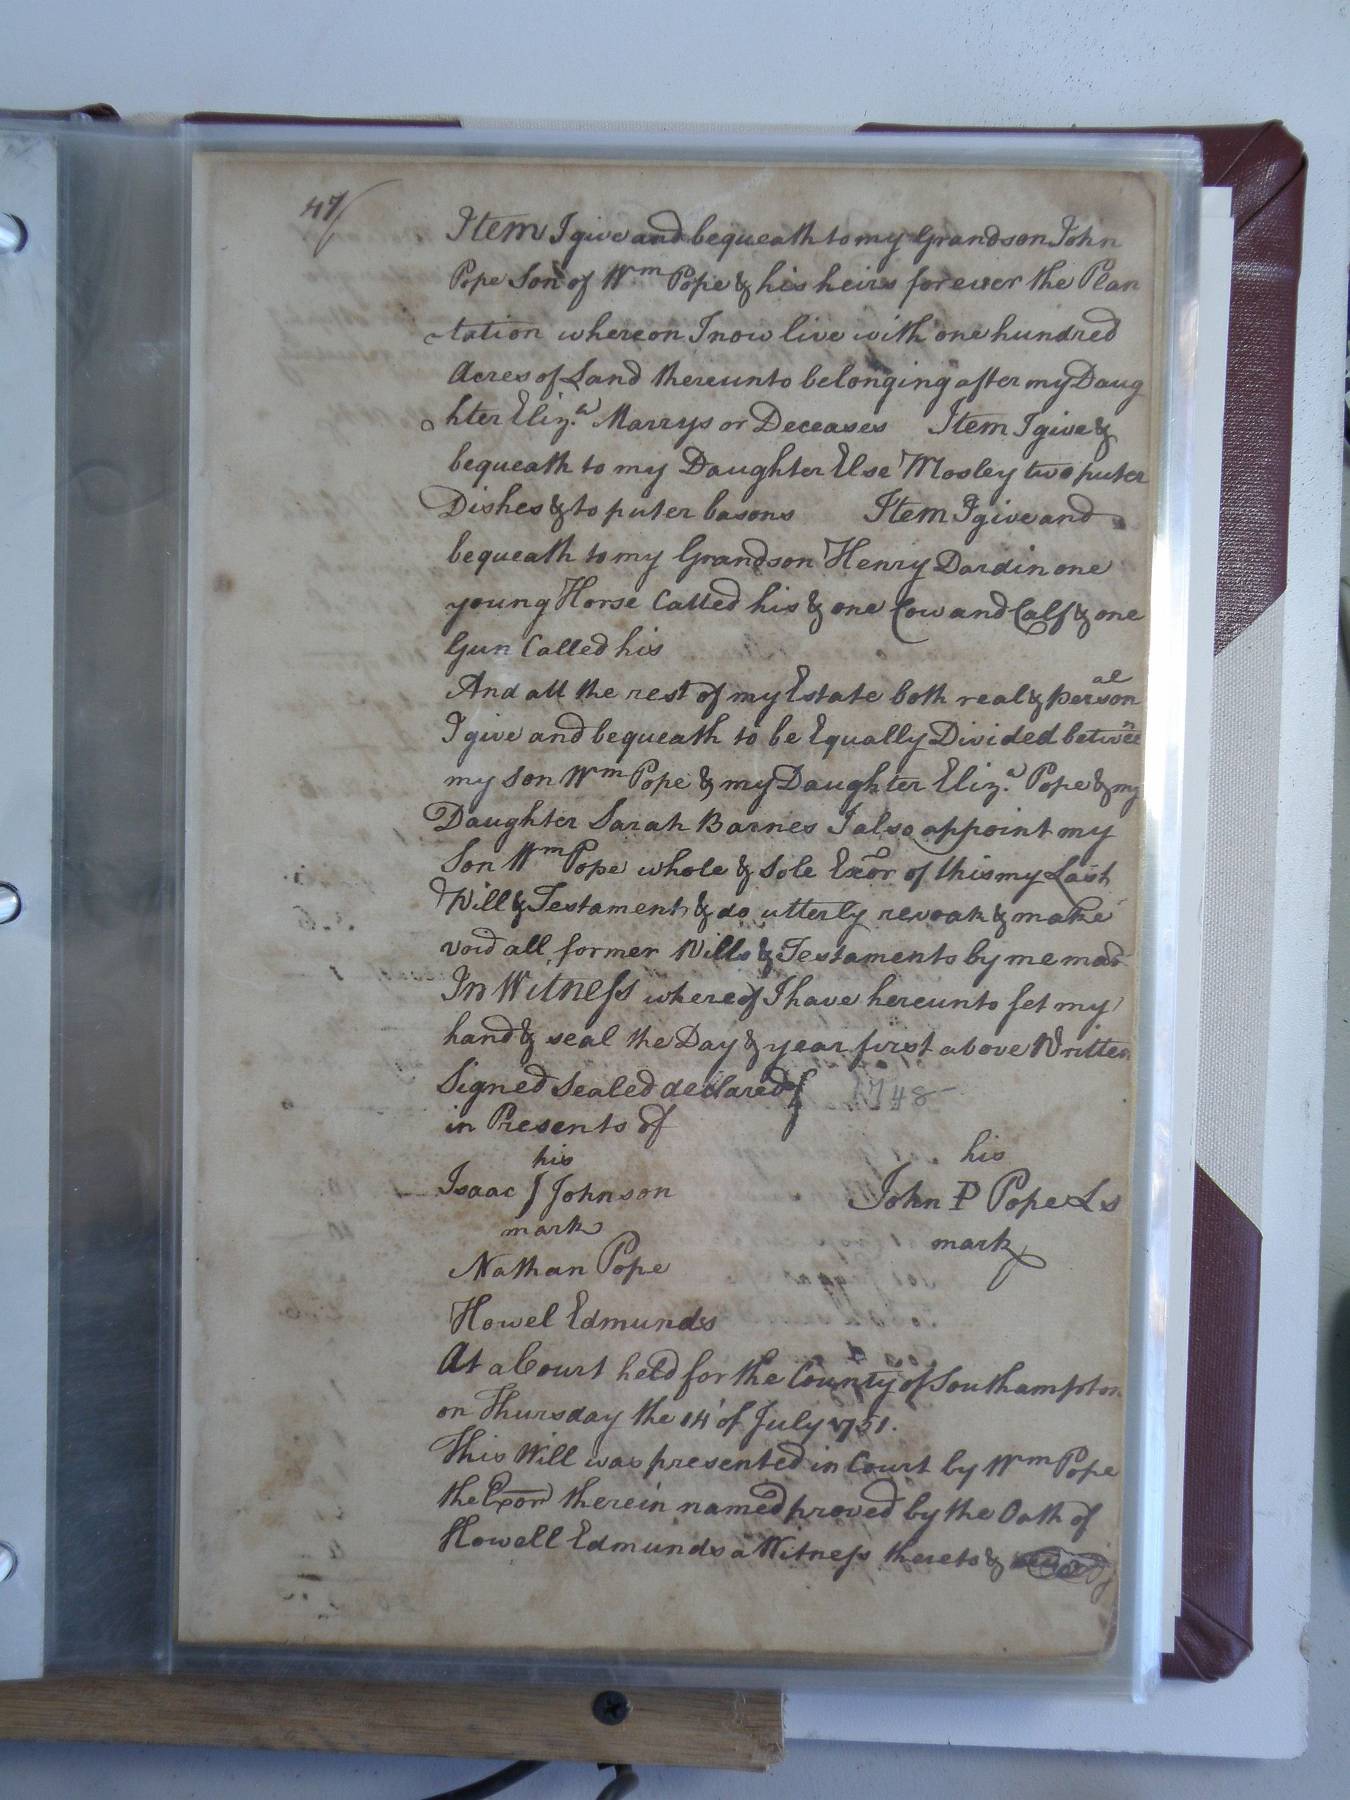 47
Item I give and bequeath to my Grandson John
Pope Son of Wm Pope & his heirs forever the Plan
tation whereon I now live with one hundred
Acres of Land thereunto belonging after my Daug
hter Eliz.a Marrys or Deceases Item I give &
bequeath to my Daughter Else Mosley two puter
Dishes & to puter basons Item I give and
bequeath to my Grandson Henry Dardin one
young Horse Called his & one Cow and Calf & one
Gun Called his
And all the rest of my Estate both real & personal
I give and bequeath to be Equally Divided between
my son Wm Pope & my Daughter Eliz.a Pope & my
Daughter Sarah Barnes I also appoint my
Son Wm Pope whole & Sole Exor of this my Last
Will & Testament & do utterly revoak & make
void all former Wills & Testaments by me mad
In Witness whereof I have hereunto set my
hand & seal the Day & year first above Written
Signed Sealed declared 1748
in Presents of
his his
Isaac J Johnson John P Pope Ls
mark mark
Nathan Pope
Howel Edmunds
At a Court held for the County of Southampton
on Thursday the 14 of July 1751.
This Will was presented in Court by Wm Pope
the Exor therein named proved by the Oath of
Howell Edmunds a Witness thereto &